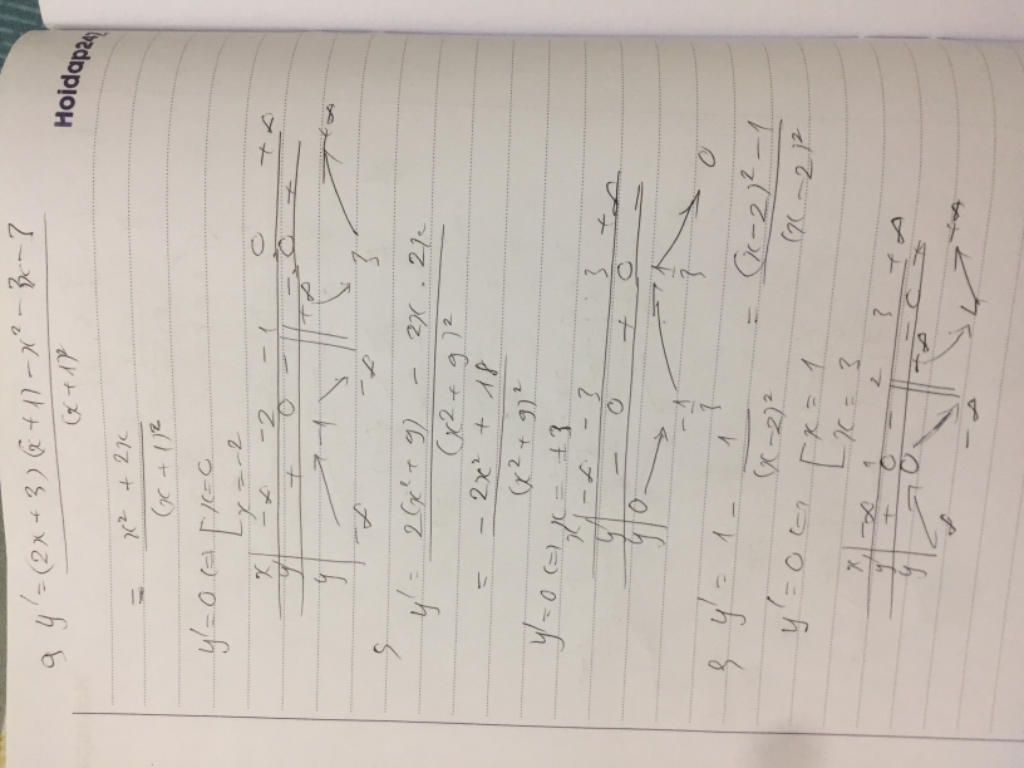 Hoidap247
a, y' = (2x+3)(x+1) - x² - 3x - 3
(x+1)²
= x² + 2x
(x+1)²
y' = 0 <=> [ x = 0
x = -2
x -∞ -2 -1 0 +∞
y' + 0 - || - 0 +
y -∞ -1 -∞ || +∞ 3 +∞
y' = 2(x²+9) - 2x . 2x
(x²+9)²
= -2x² + 18
(x²+9)²
y' = 0 <=> x = ±3
x -∞ -3 3 +∞
y' - 0 + 0 -
y 0 -1/3 1/3 0
y' = 1 - 1 = (x-2)² - 1
(x-2)² (x-2)²
y' = 0 <=> [ x = 1
x = 3
x -∞ 1 2 3 +∞
y' + 0 - || - 0 +
y -∞ 0 -∞ || +∞ 4 +∞